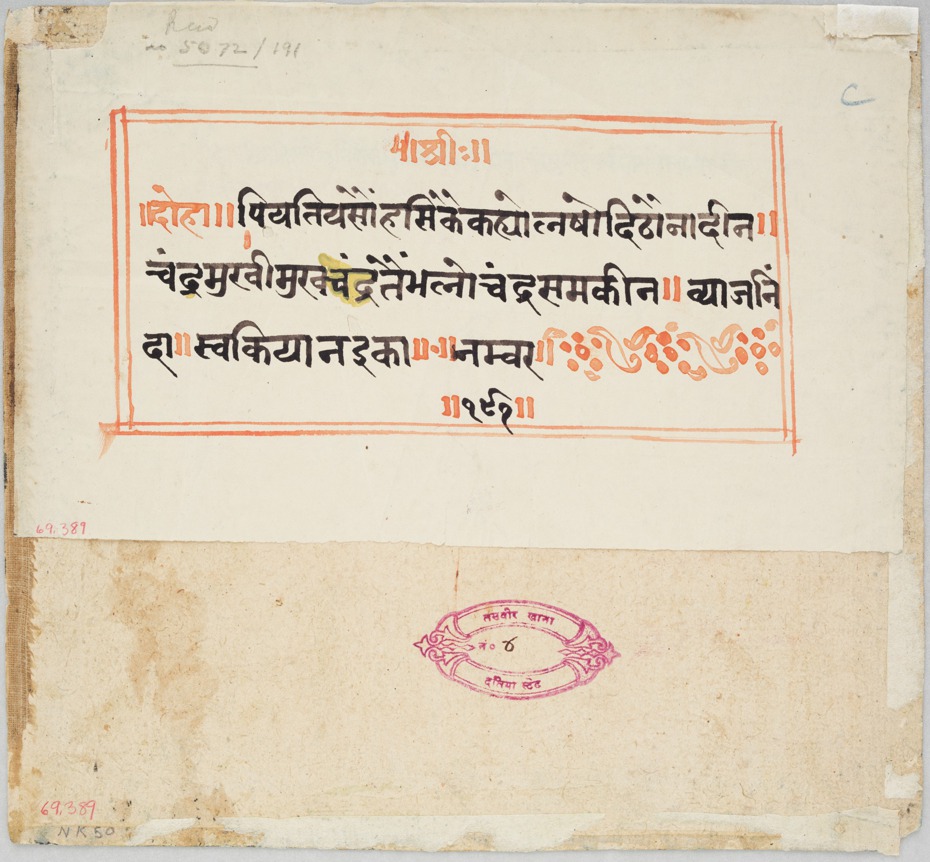 no 5072/191
C
॥श्रीः॥
॥दोहा॥ पियतियसौंहसिकैकह्योलषोदिठौनादीन॥
चंद्रमुखीमुखचंद्रतैंभलोचंद्रसमकीन॥ व्याजनिं
दा॥ स्वकिया नइका॥ नम्बर॥
॥१९१॥
69.389
तसवीर खाना
नं० ४
दतिया स्टेट
69.389
NK50